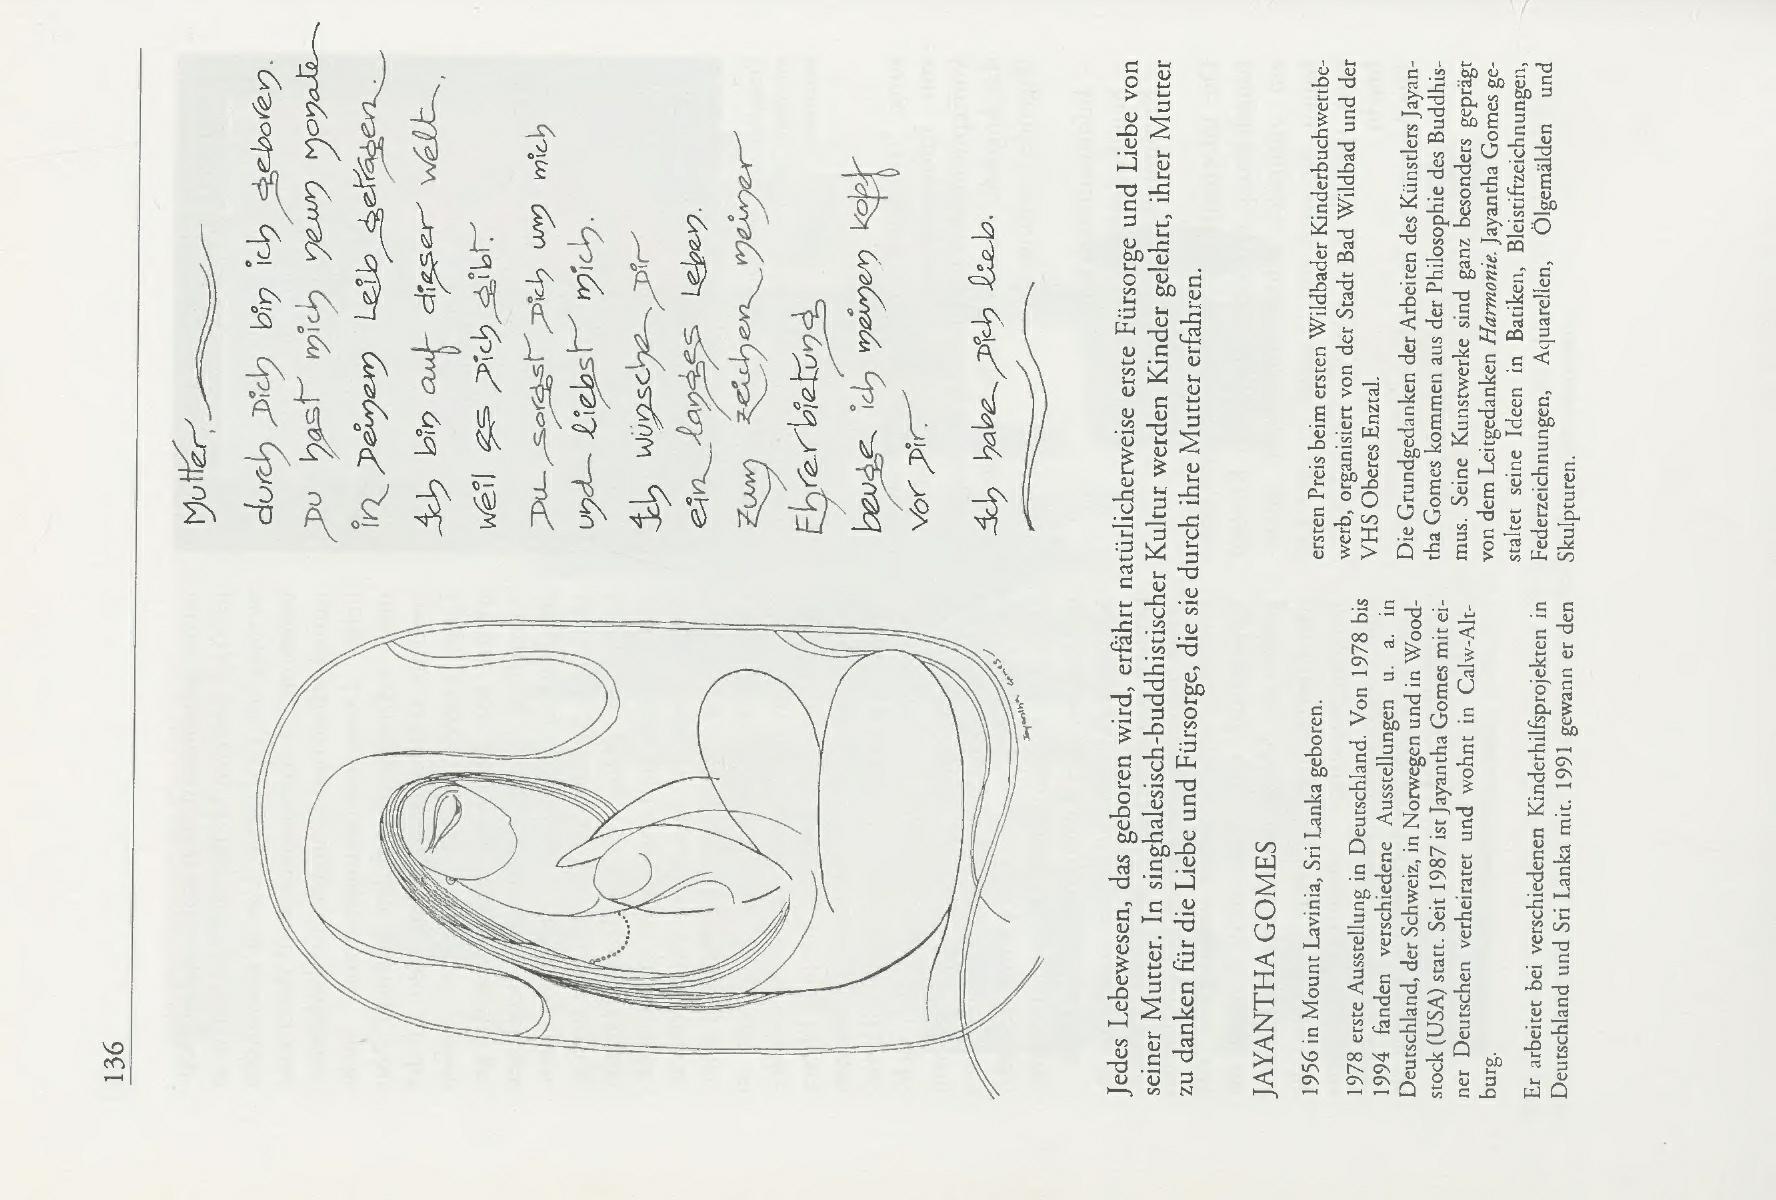 136
Mutter,
durch Dich bin ich geboren.
Du hast mich neun Monate
in Deinem Leib getragen.
Ich bin auf dieser Welt,
weil es Dich gibt.
Du sorgst Dich um mich
und liebst mich.
Ich wünsche Dir
ein langes Leben.
Zum Zeichen meiner
Ehrerbietung
beuge ich meinen Kopf
vor Dir.
Ich habe Dich lieb.
Jayantha Gomes
Jedes Lebewesen, das geboren wird, erfährt natürlicherweise erste Fürsorge und Liebe von
seiner Mutter. In singhalesisch-buddhistischer Kultur werden Kinder gelehrt, ihrer Mutter
zu danken für die Liebe und Fürsorge, die sie durch ihre Mutter erfahren.
JAYANTHA GOMES
1956 in Mount Lavinia, Sri Lanka geboren.
1978 erste Ausstellung in Deutschland. Von 1978 bis
1994 fanden verschiedene Ausstellungen u. a. in
Deutschland, der Schweiz, in Norwegen und in Wood-
stock (USA) statt. Seit 1987 ist Jayantha Gomes mit ei-
ner Deutschen verheiratet und wohnt in Calw-Alt-
burg.
Er arbeitet bei verschiedenen Kinderhilfsprojekten in
Deutschland und Sri Lanka mit. 1991 gewann er den
ersten Preis beim ersten Wildbader Kinderbuchwettbe-
werb, organisiert von der Stadt Bad Wildbad und der
VHS Oberes Enztal.
Die Grundgedanken der Arbeiten des Künstlers Jayan-
tha Gomes kommen aus der Philosophie des Buddhis-
mus. Seine Kunstwerke sind ganz besonders geprägt
von dem Leitgedanken Harmonie. Jayantha Gomes ge-
staltet seine Ideen in Batiken, Bleistiftzeichnungen,
Federzeichnungen, Aquarellen, Ölgemälden und
Skulpturen.